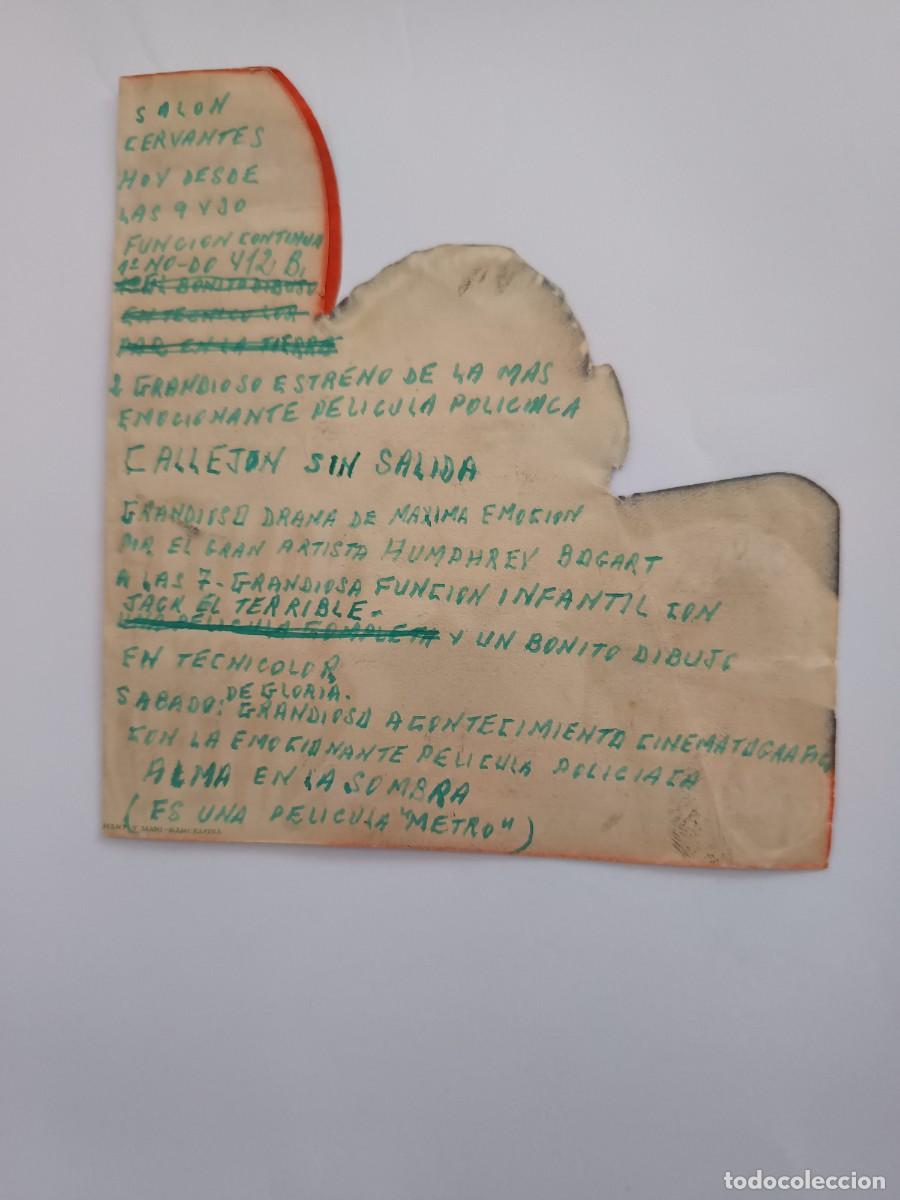 SALON
CERVANTES
HOY DESDE
LAS 9 Y 30
FUNCION CONTINUA
1º NO-DO 412 B.
BONITO DIBUJO
EN TECNICOLOR
PAR EN LA TIERRA
2 GRANDIOSO ESTRENO DE LA MAS
EMOCIONANTE PELICULA POLICIACA
CALLEJON SIN SALIDA
GRANDIOSO DRAMA DE MAXIMA EMOCION
POR EL GRAN ARTISTA HUMPHREY BOGART
A LAS 7 - GRANDIOSA FUNCION INFANTIL CON
JACK EL TERRIBLE -
PELICULA COMPLETA Y UN BONITO DIBUJO
EN TECNICOLOR
DE GLORIA.
SABADO: GRANDIOSO ACONTECIMIENTO CINEMATOGRAFICO
CON LA EMOCIONANTE PELICULA POLICIACA
ALMA EN LA SOMBRA
(ES UNA PELICULA "METRO")
todocoleccion